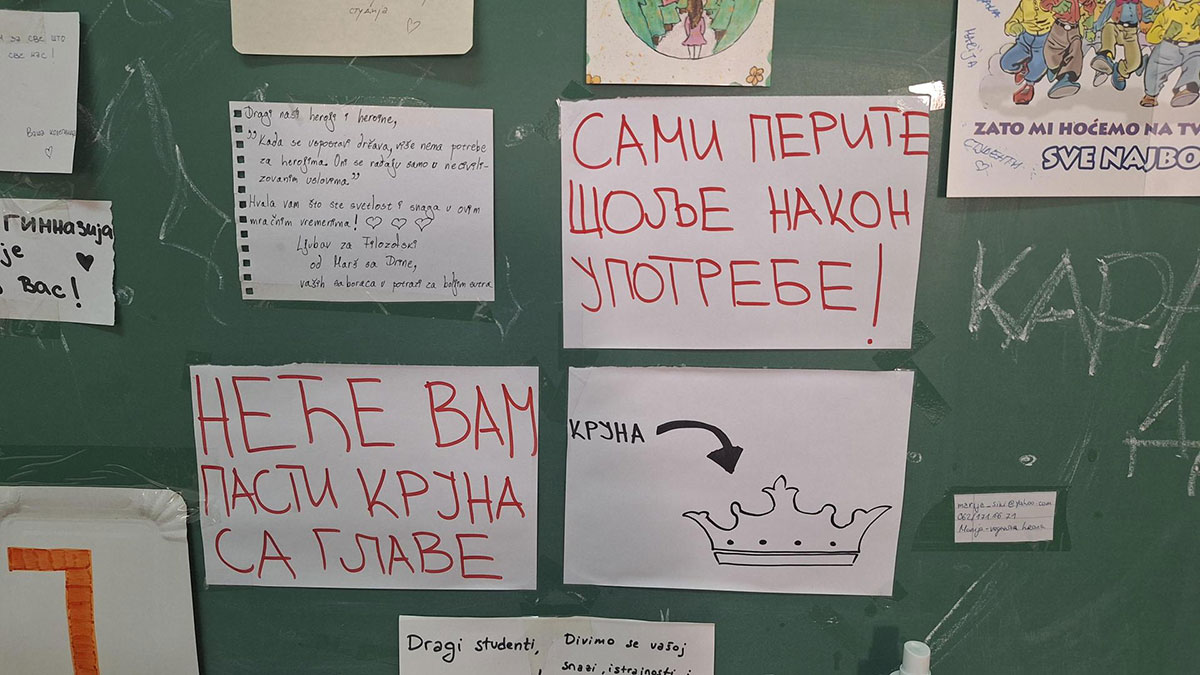 студија
за све што
све нас!
гимназија
је
вас!
Dragi naši heroji i heroine,
"Kada se uspostavi država, više nema potrebe
za herojima. Oni se rađaju samo u necivili-
zovanim uslovima."
Hvala vam što ste svetlost i snaga u ovim
mračnim vremenima! ♡ ♡ ♡
Ljubav za Filozofski
od Marš sa Drine,
vaših saboraca u potrazi za boljim sutra
САМИ ПЕРИТЕ
ШОЉЕ НАКОН
УПОТРЕБЕ!
ZATO MI HOĆEMO NA
SVE NAJBO
СТУДЕНТИ
НЕЋЕ ВАМ
ПАСТИ КРУНА
СА ГЛАВЕ
КРУНА
Dragi studenti,
Divimo se vašoj
snazi, istrajnosti i